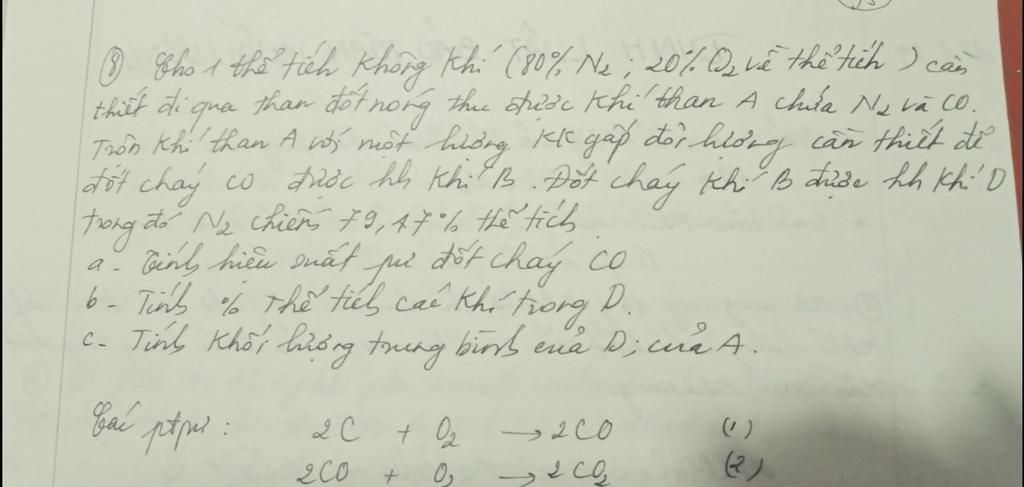 ⑧ Cho 1 thể tích không khí (80% N2; 20% O2 về thể tích) cần
thiết đi qua than đốt nóng thu được khí than A chứa N2 và CO.
Trộn khí than A với một lượng KK gấp đôi lượng cần thiết để
đốt cháy CO được hh khí B. Đốt cháy khí B được hh khí D
trong đó N2 chiếm 79,47% thể tích
a - Tính hiệu suất pư đốt cháy CO
b - Tính % thể tích các khí trong D.
c - Tính khối lượng trung bình của D; của A.
Các ptpư: 2C + O2 → 2CO (1)
2CO + O2 → 2CO2 (2)